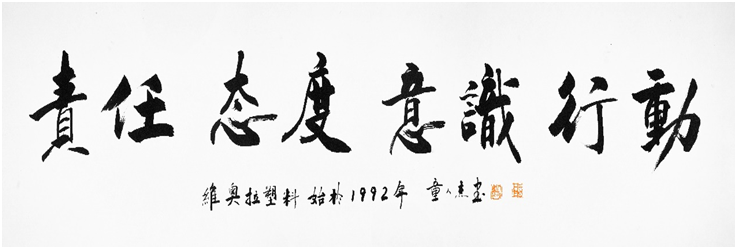 責任 态度 意識 行動
維奥拉塑料 始於1992年 童